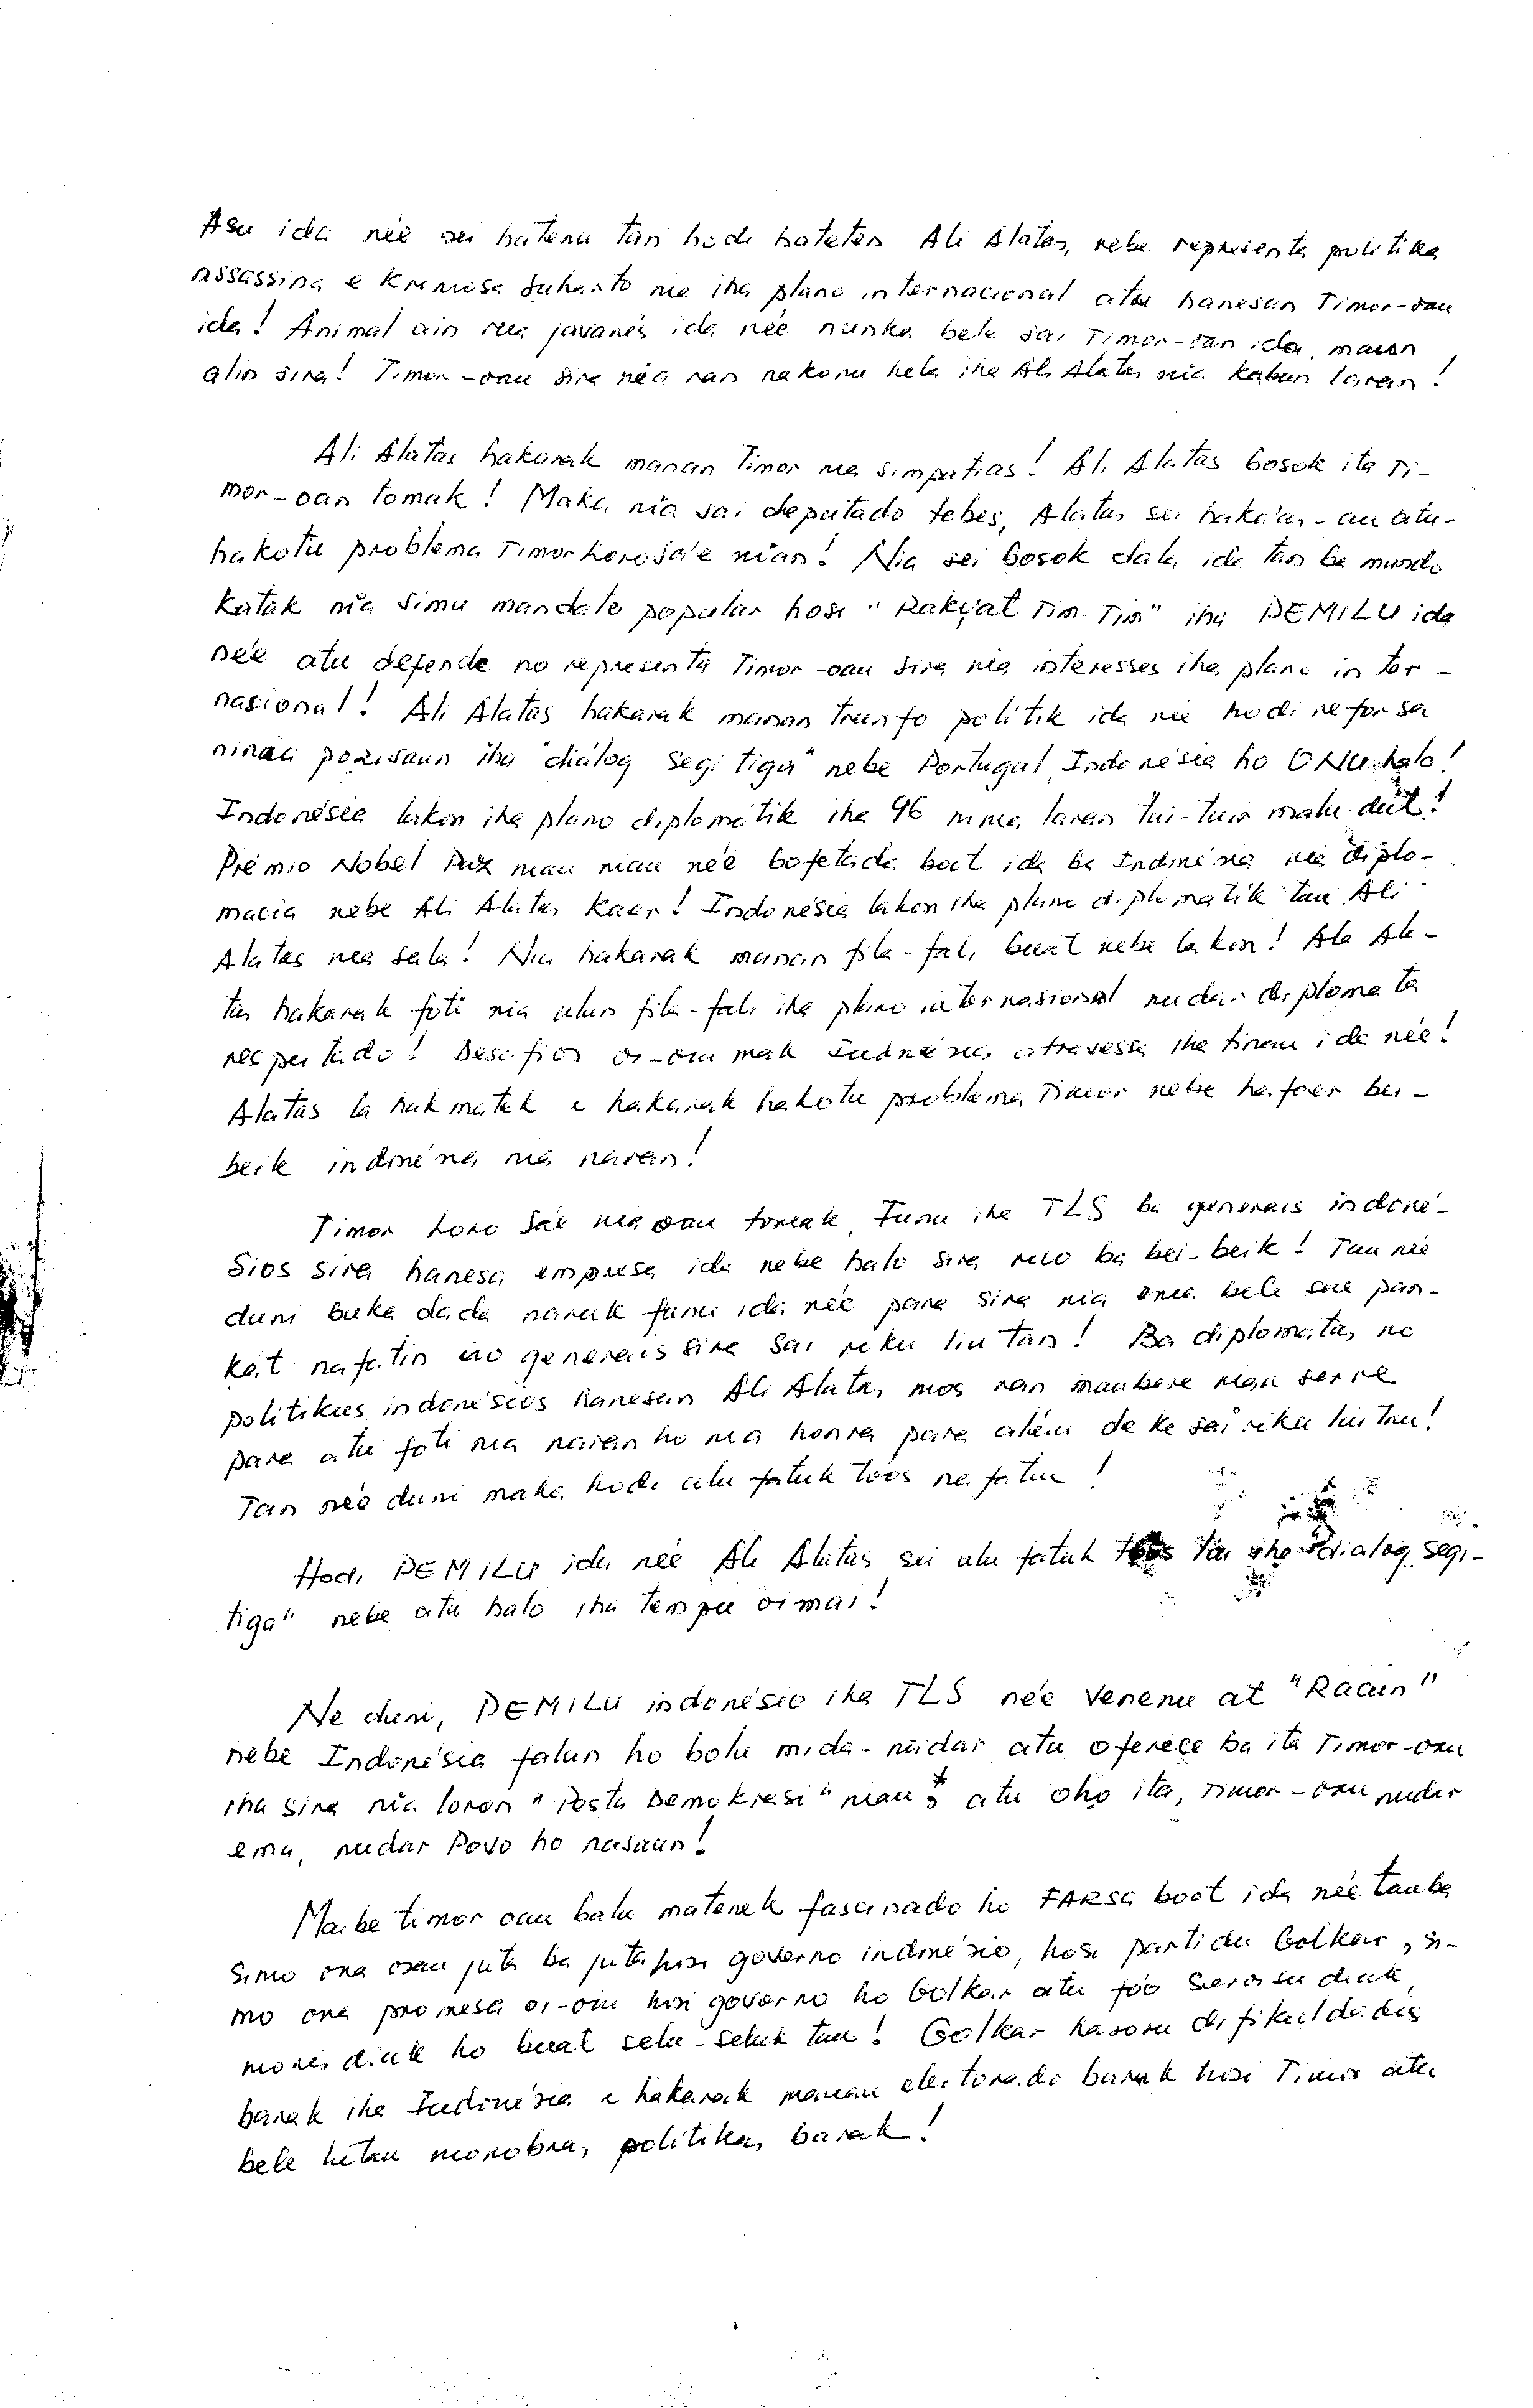 Asu ida née sei hatenu tan hodi hateten Ali Alatas, nebe representa politika
assassina e kriminosa Suharto nia iha plano internacional atu hanesan Timor-oan
ida! Animal ain rua javanés ida née nunka bele sai Timor-oan ida, maun
alin sira! Timor-oan sira nia ran nakonu hela iha Ali Alatas nia kabun laran!
Ali Alatas hakarak manan Timor nia simpatias! Ali Alatas bosok ita Ti-
mor-oan tomak! Maka nia sai deputado tebes, Alatas sei haka'as-an atu-
hakotu problema Timor Loro Sa'e nian! Nia sei bosok dala ida tan ba mundo
katak nia simu mandato popular hosi "Rakyat Tim-Tim" iha PEMILU ida
née atu defende no representa Timor-oan sira nia interesses iha plano inter-
nasional! Ali Alatas hakarak manan trunfo politik ida née hodi reforsa
ninia pozisaun iha "diálog segi tiga" nebe Portugal, Indonésia ho ONU halo!
Indonésia lakon iha plano diplomátik iha 96 nia laran tui-tuir malu deit!
Prémio Nobel Paz nian née bofetada boot ida ba Indonésia nia diplo-
macia nebe Ali Alatas kaer! Indonésia lakon iha plano diplomátik tan Ali
Alatas nia sala! Nia hakarak manan fila-fali buat nebe lakon! Ali Ala-
tas hakarak foti nia ulun fila-fali iha plano internasional nudar diplomata
respeitado! Desafios oi-oin mak Indonésia atravessa iha tinan ida née!
Alatas la hakmatek e hakarak hakotu problema Timor nebe hafoer bei-
beik indonésia nia naran!
Timor Loro Sae nia oan tomak, Funu iha TLS ba generais indoné-
sios sira hanesa empresa ida nebe halo sira riko ba bei-beik! Tan née
duni buka dada naruk funu ida née para sira nia onra bele sae pan-
kat nafatin no generais sira sai riku liu tan! Ba diplomatas no
politikus indonésios hanesan Ali Alatas mos ran maubere nian serve
para atu foti nia naran ho nia honra para além de ke sai riku liu tan!
Tan née duni maka hodi ulu fatuk tóos nafatin!
Hodi PEMILU ida née Ali Alatas sei ulu fatuk tóos liu iha "dialog segi-
tiga" nebe atu halo iha tempu oi mai!
Ne duni, PEMILU indonésio iha TLS née venenu at "Racun"
nebe Indonésia falun ho bolu mida-midar atu oferece ba ita Timor-oan
iha sira nia loron "Pesta Demokrasi" nian atu oho ita, Timor-oan nudar
ema, nudar Povo ho nasaun!
Maibe timor oan balu matenek fascinado ho FARSA boot ida née tanba
simo ona osan juta ba juta hosi governo indonésio, hosi partidu Golkar, si-
mo ona promesa oi-oin hosi governo ho Golkar atu fóo servisu diak,
moris diak ho buat selu-seluk tan! Golkar hasoru difikuldades
barak iha Indonésia e hakarak manan eleitorado barak hosi Timor atu
bele hetan manobras politikas barak!